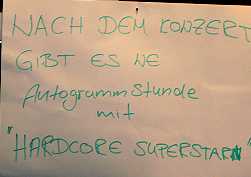 NACH DEM KONZERT
GIBT ES NE
Autogrammstunde
mit
"HARDCORE SUPERSTAR"